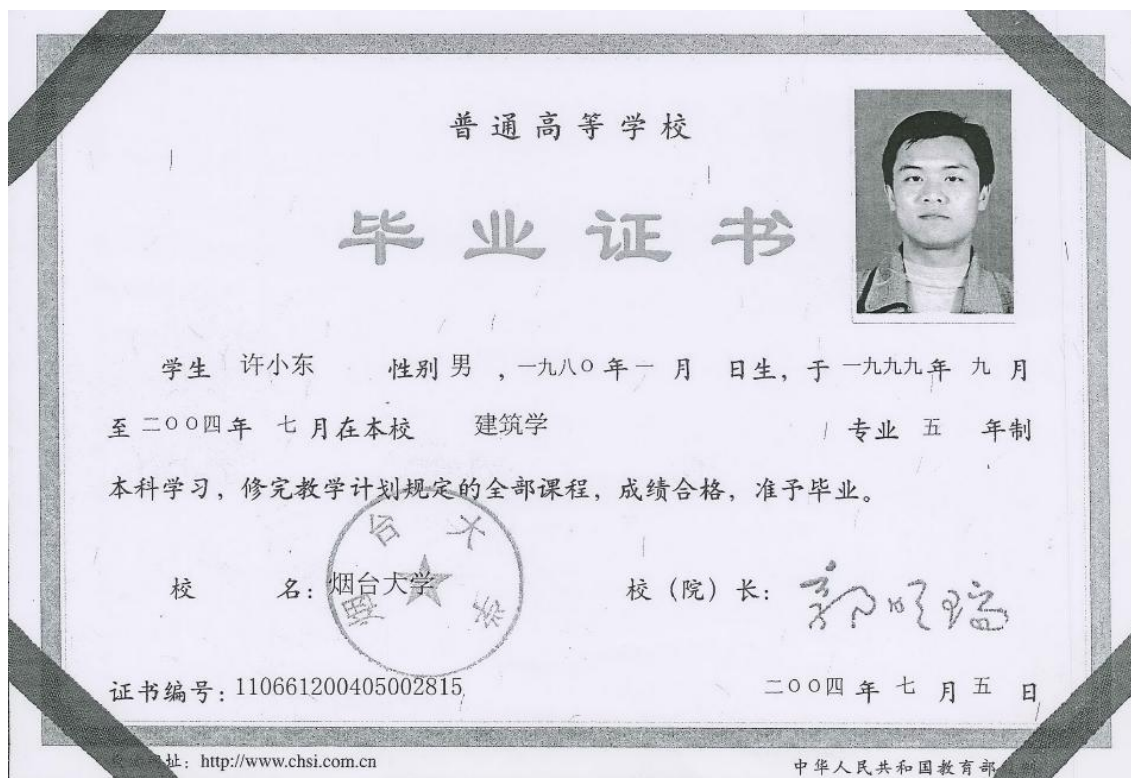 普通高等学校
毕业证书
学生 许小东 性别 男 ，一九八〇年一月 日生，于一九九九年 九 月
至二〇〇四年 七 月在本校 建筑学 专业 五 年制
本科学习，修完教学计划规定的全部课程，成绩合格，准予毕业。
校 名：烟台大学 校（院）长：
烟台大学
证书编号：110661200405002815 二〇〇四年 七 月 五 日
址：http://www.chsi.com.cn 中华人民共和国教育部